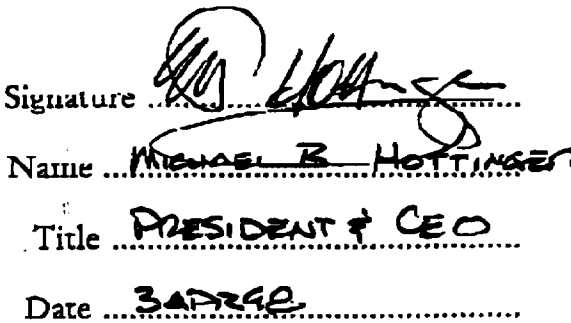 Signature
Name MICHAEL B HOTTINGER
Title PRESIDENT & CEO
Date